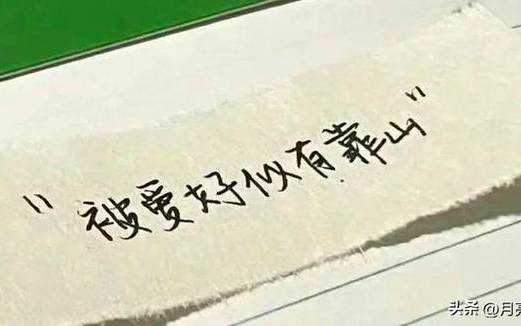 "被爱好似有靠山"
头条 @月亮